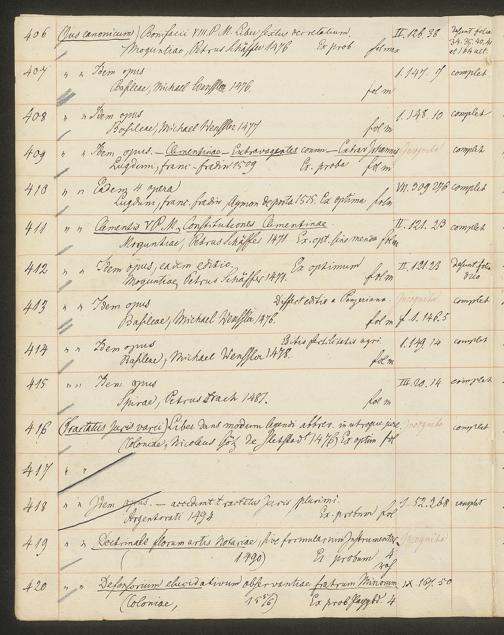 406 (Jus canonicum) Bonifacii VIII. P. M. Liber sextus decretalium II. 126. 38 Desunt folia
Moguntiae, Petrus Schöffer 1476 Ex. prob fol max
407 " " Idem opus 1. 147 7 complet
Basileae, Michael Wenssler 1476. fol m
408 " " Idem opus 1. 148. 10 complet
Basileae, Michael Wenssler 1477 fol m
409 " " Idem opus. — Clementinae — Extravagantes comm — Extrav Johannis Incognito complet
Lugduni, franc. fradin 1509 Ex. proba fol m
410 " " Eadem 4 opera VII. 309 276 complet
Lugduni, franc fradin Aymon de porta 1515. Ex optima fol m
411 " " Clementis V P. M. Constitutiones Clementinae II. 121. 23 complet
Moguntiae, Petrus Schöffer 1471 Ex. opt. sine menda fol m
412 " " Idem opus, eadem editio. Ex optimum II. 121. 23 Desunt folia duo
Moguntiae, Petrus Schöffer 1471. fol m
413 " " Idem opus Differt editio a Panzeriana. Incognito complet
Basileae, Michael Wenssler 1476. fol m 1. 148. 5
414 " " Idem opus 1. 149. 14 complet
Basileae, Michael Wenssler 1478. fol m
415 " " Idem opus III. 20. 14 complet
Spirae, Petrus Drach 1481. fol m
416 (Tractatus Juris varii) Liber dans modum legendi abbrev. in utroque jure Incognito complet
(Coloniae, Nicolaus Götz de Sletstadt 1476) Ex optim fol
417 " "
418 " " Idem opus. — accedunt tractatus juris plurimi. 1. 52. 268 complet
Argentorati 1494 Ex. probum fol
419 " " Doctrinale florum artis Notariae, sive formularium Instrumentor. Incognito
( 1490) Ex probum 4
420 " " Defensorium elucidativum observantiae fratrum Minorum IX 157. 50
(Coloniae, 1516) Ex prob 4